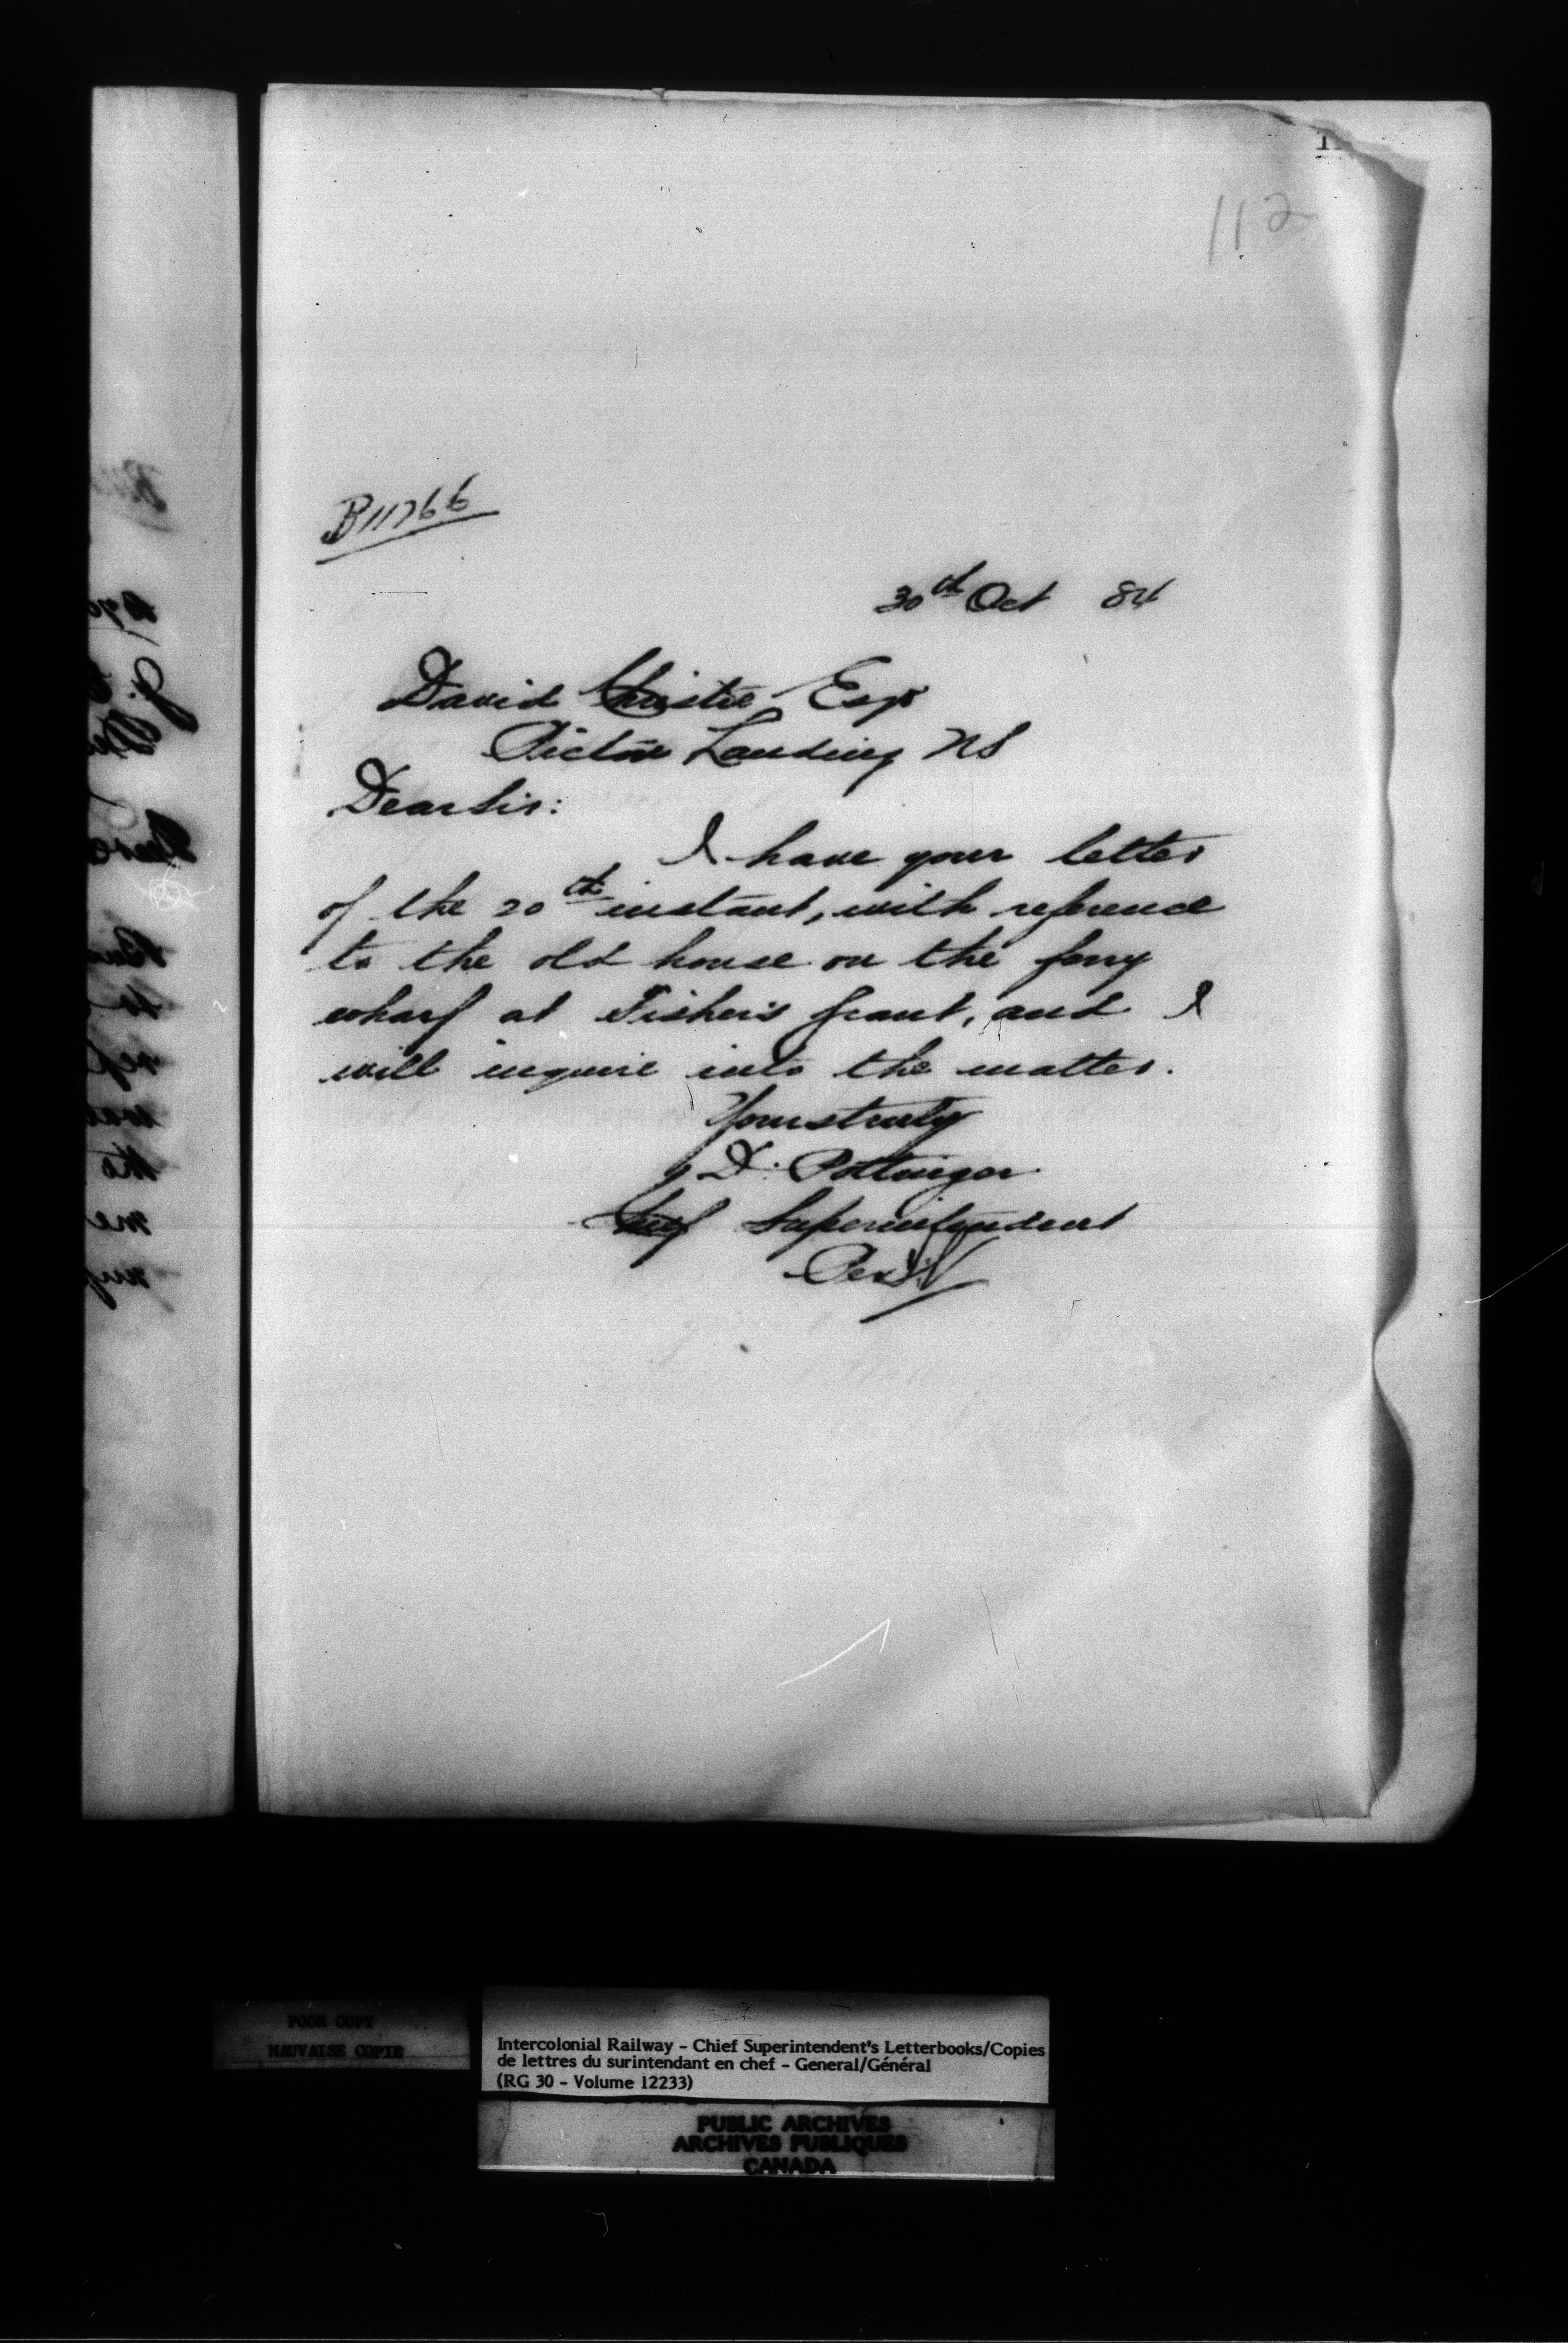 112
B11766
30th Oct 84
David Christie Esqr
Pictou Landing NS
Dear Sir:
I have your letter
of the 20th instant, with reference
to the old house on the ferry
wharf at Fisher's Grant, and I
will inquire into the matter.
Yours truly
D. Pottinger
Chief Superintendent
Per
POOR COPY
MAUVAISE COPIE
Intercolonial Railway - Chief Superintendent's Letterbooks/Copies
de lettres du surintendant en chef - General/Général
(RG 30 - Volume 12233)
PUBLIC ARCHIVES
ARCHIVES PUBLIQUES
CANADA